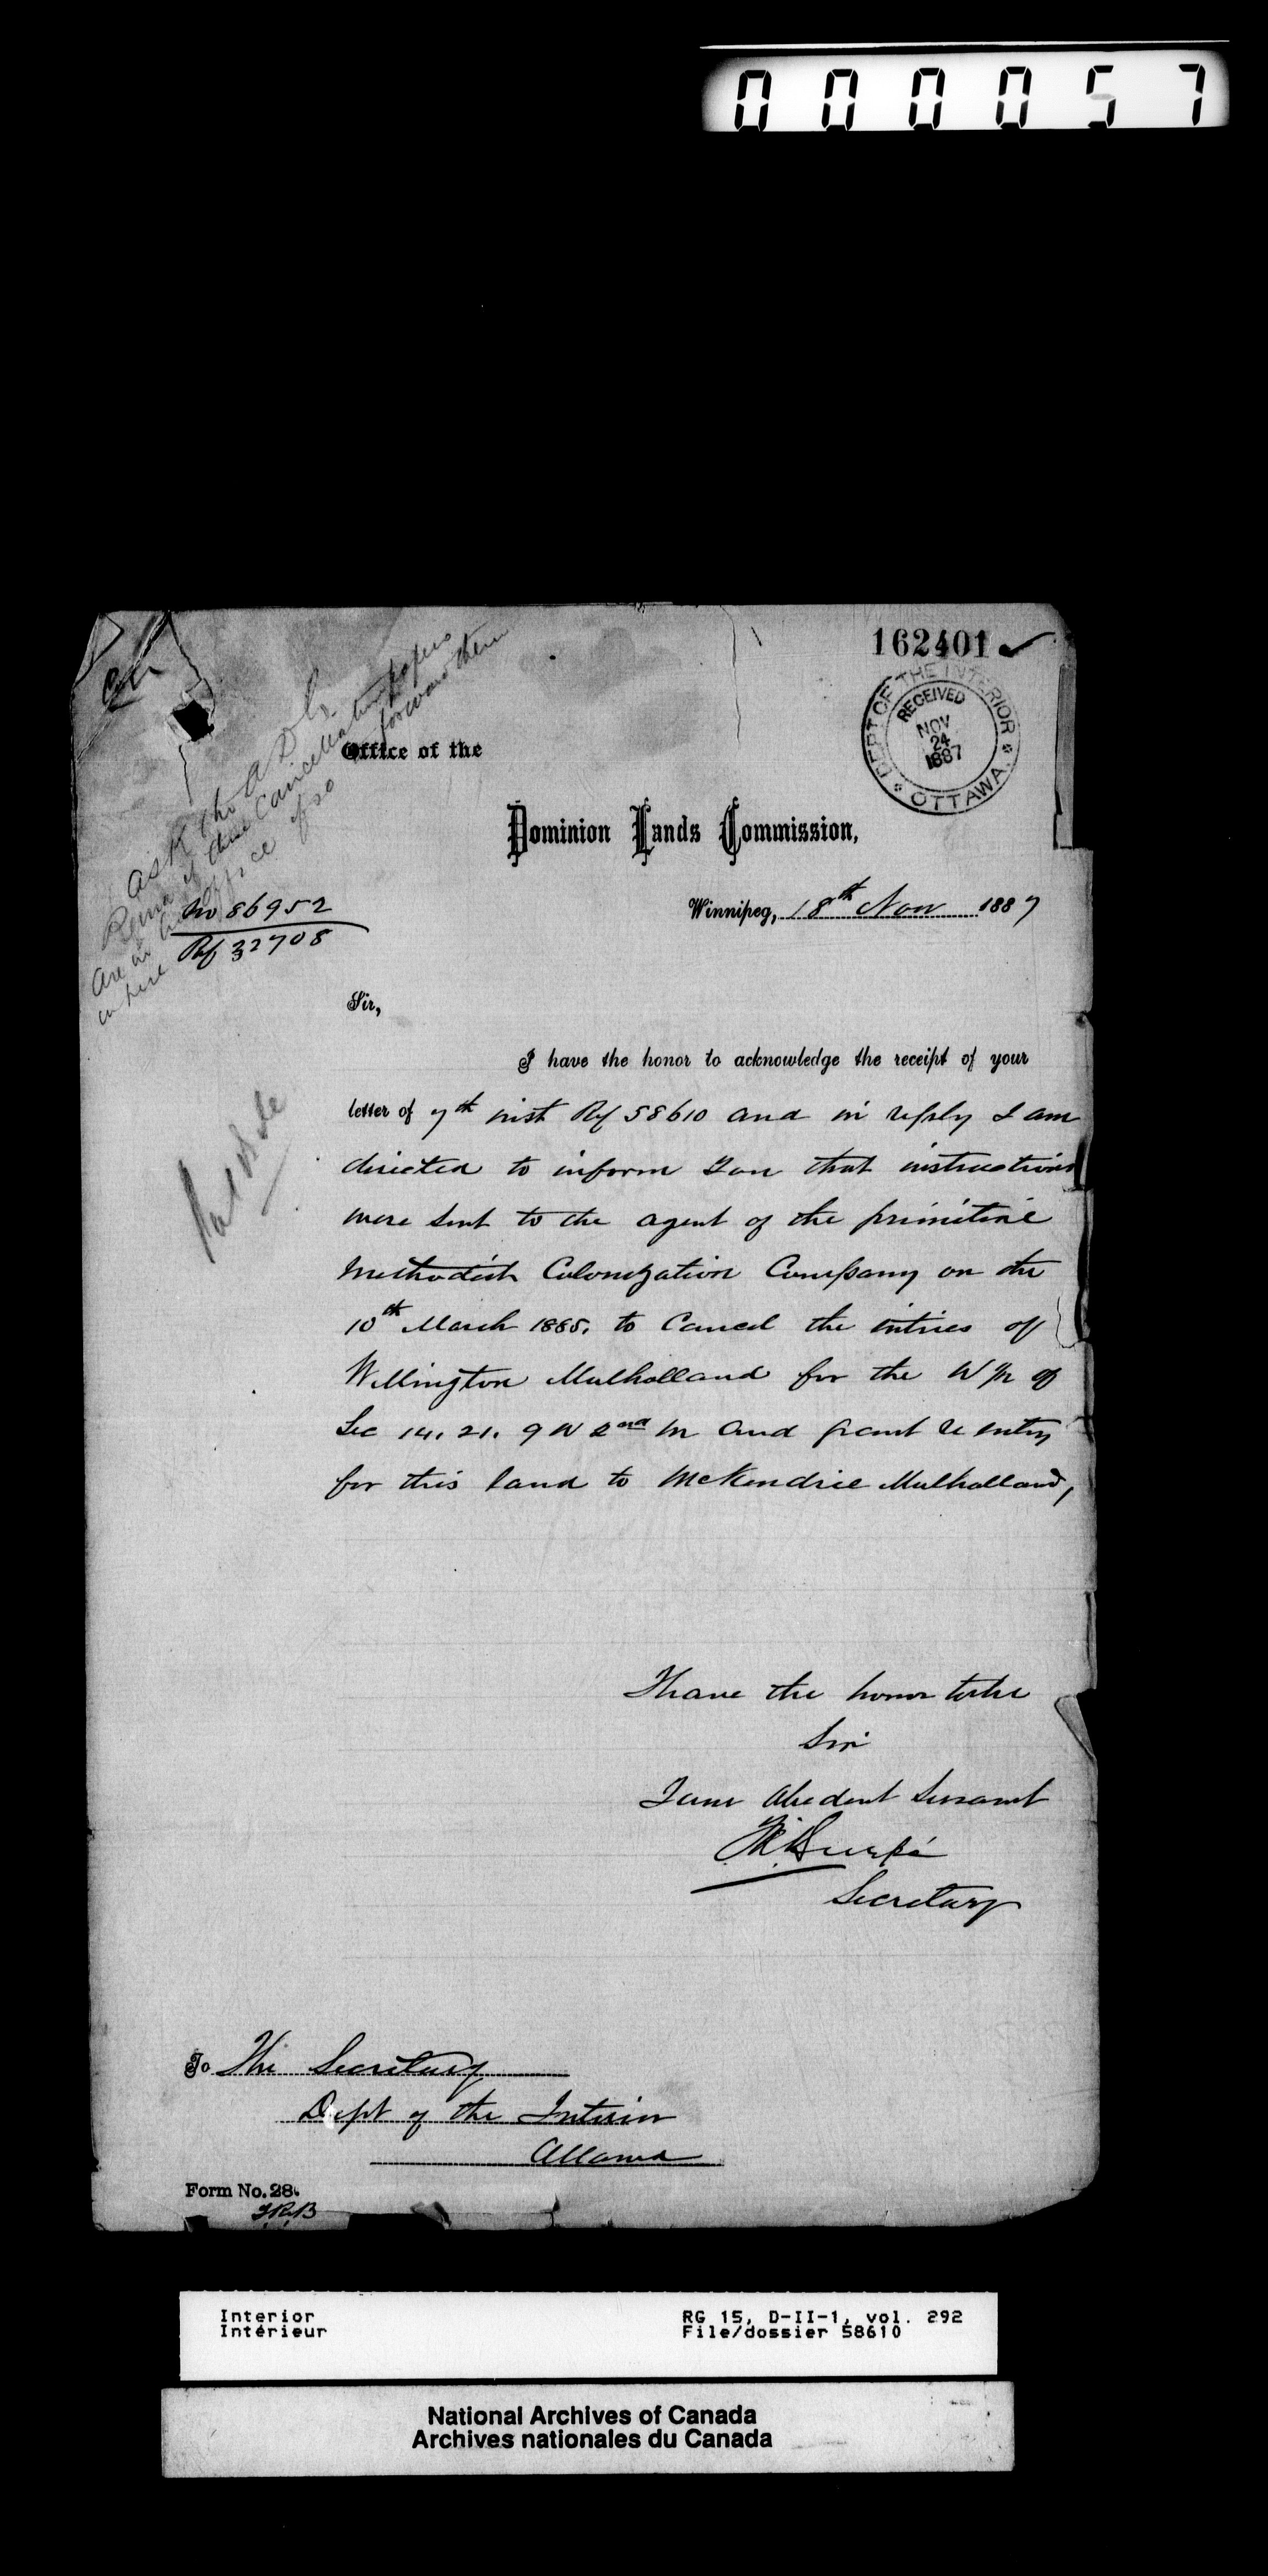 000057
162401
DEPT OF THE INTERIOR
RECEIVED
NOV
24
1887
OTTAWA
ask the
if these Cancellation papers
are in his office if so
forward them
here
Office of the
Dominion Lands Commission,
No 86952
Rf 32708
Winnipeg, 18th Nov 1887
Sir,
I have the honor to acknowledge the receipt of your
letter of 7th inst Rf 58610 and in reply I am
directed to inform you that instructions
were sent to the agent of the primitive
Methodist Colonization Company on the
10th March 1885. to Cancel the entries of
Wellington Mulholland for the W ½ of
Sec 14. 21. 9 W 2nd M and grant re entry
for this land to McKendrie Mulholland,
I have the honor to be
Sir
Your Obedent Servant
Secretary
To The Secretary
Dept of the Interior
Ottawa
Form No. 28.
Interior
Intérieur
RG 15, D-II-1, vol. 292
File/dossier 58610
National Archives of Canada
Archives nationales du Canada